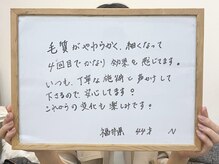 毛質がやわらかく、細くなって
4回目でかなり効果を感じてます。
いつも、丁寧な施術と声かけして
下さるので、安心してます？
これからの変化も楽しみです！
福井県 44才 N